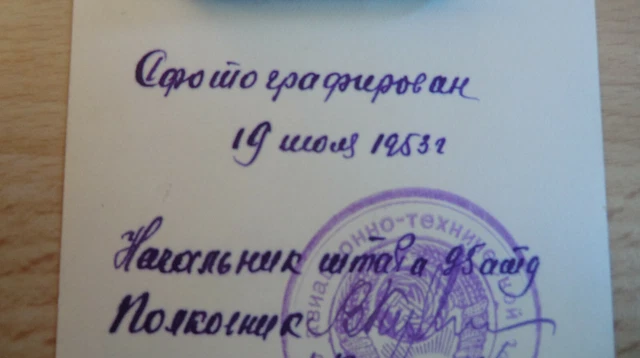 Сфотографирован
19 июля 1953 г
Начальник штаба 95 атд
Полковник
авиационно-технической